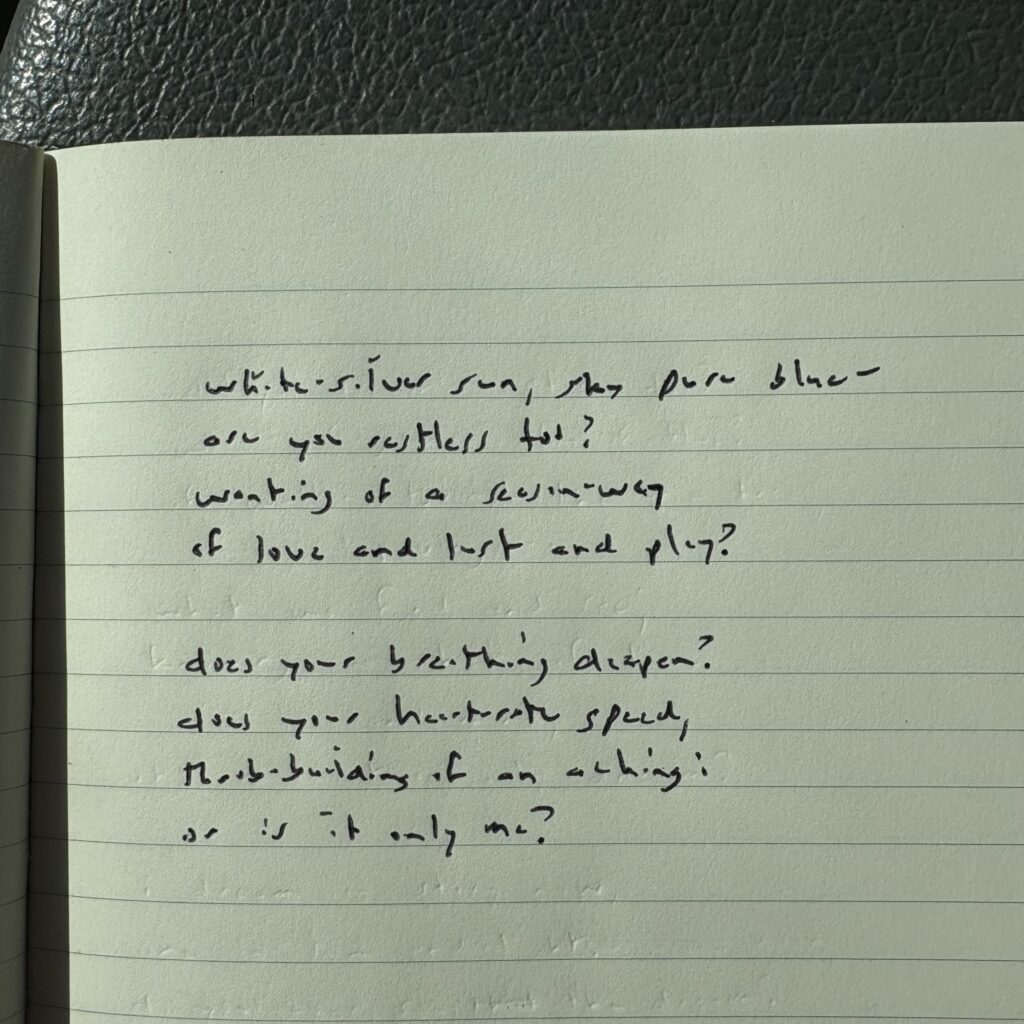 white-silver sun, sky pure blue-
are you restless too?
wanting of a season-way
of love and lust and play?
does your breathing deepen?
does your heartrate speed,
throb-building of an aching:
or is it only me?